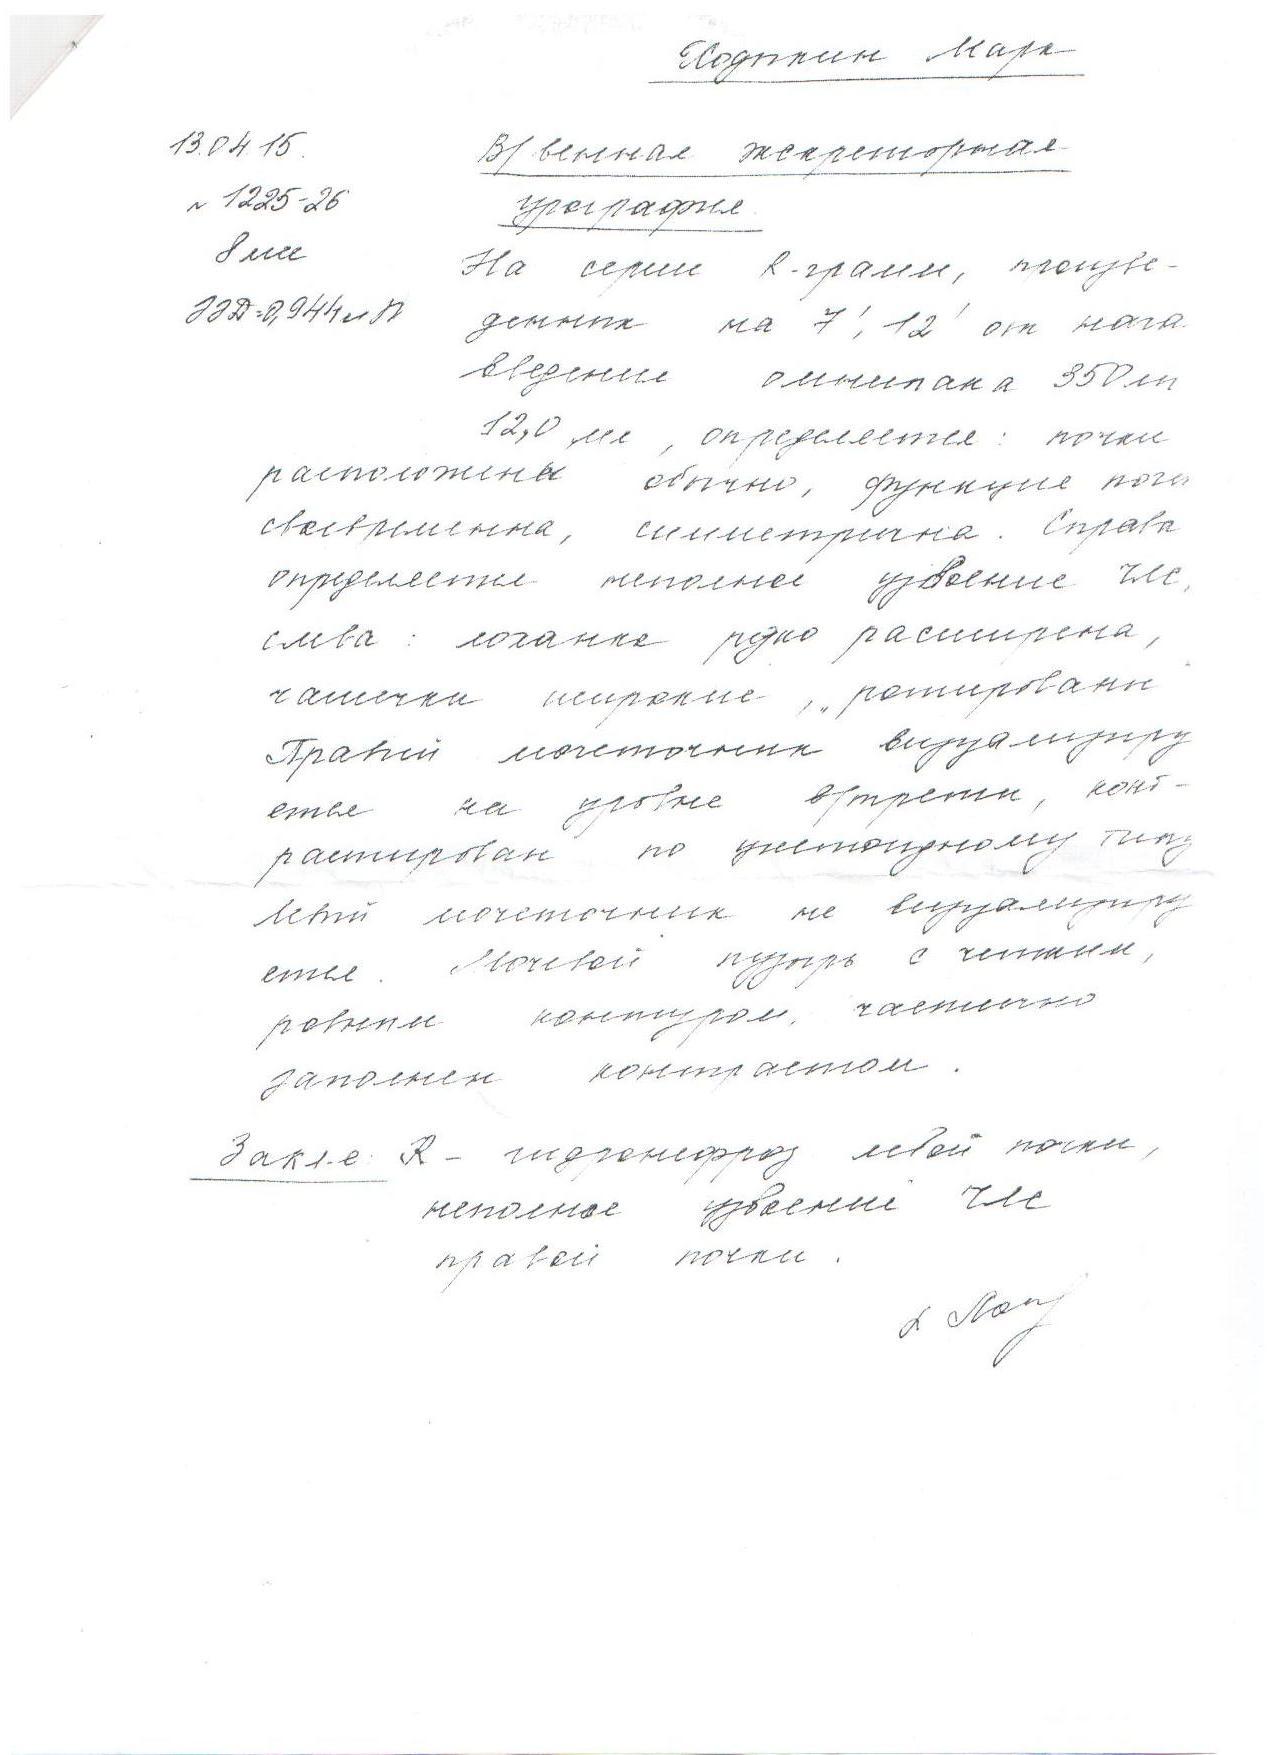 Ходыкин Марк
13.04.15.
В/венная экскреторная
N 1225-26
урография.
8 мес
На серии R-грамм, произве-
ЭЭД=0,944мЗв
денных на 7', 12' от нача
введения омнипака 350 m
12,0 мл, определяется: почки
расположены обычно, функция поче
своевременна, симметрична. Справа
определяется неполное удвоение ЧЛС,
слева: лоханка резко расширена,
чашечки широкие, ротированы
Правый мочеточник визуализиру
ется на уровне в/трети, конт-
растирован по цистоидному типу
Левый мочеточник не визуализиру
ется. Мочевой пузырь с четким,
ровным контуром, частично
заполнен контрастом.
Закл-е: R- гидронефроз левой почки,
неполное удвоение ЧЛС
правой почки.